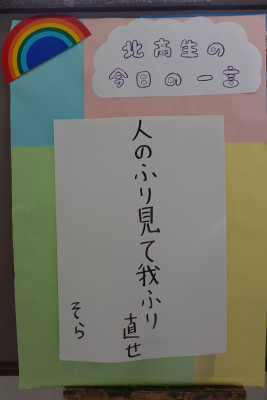 北高生の
今日の一言
人のふり見て我ふり
直せ
そら